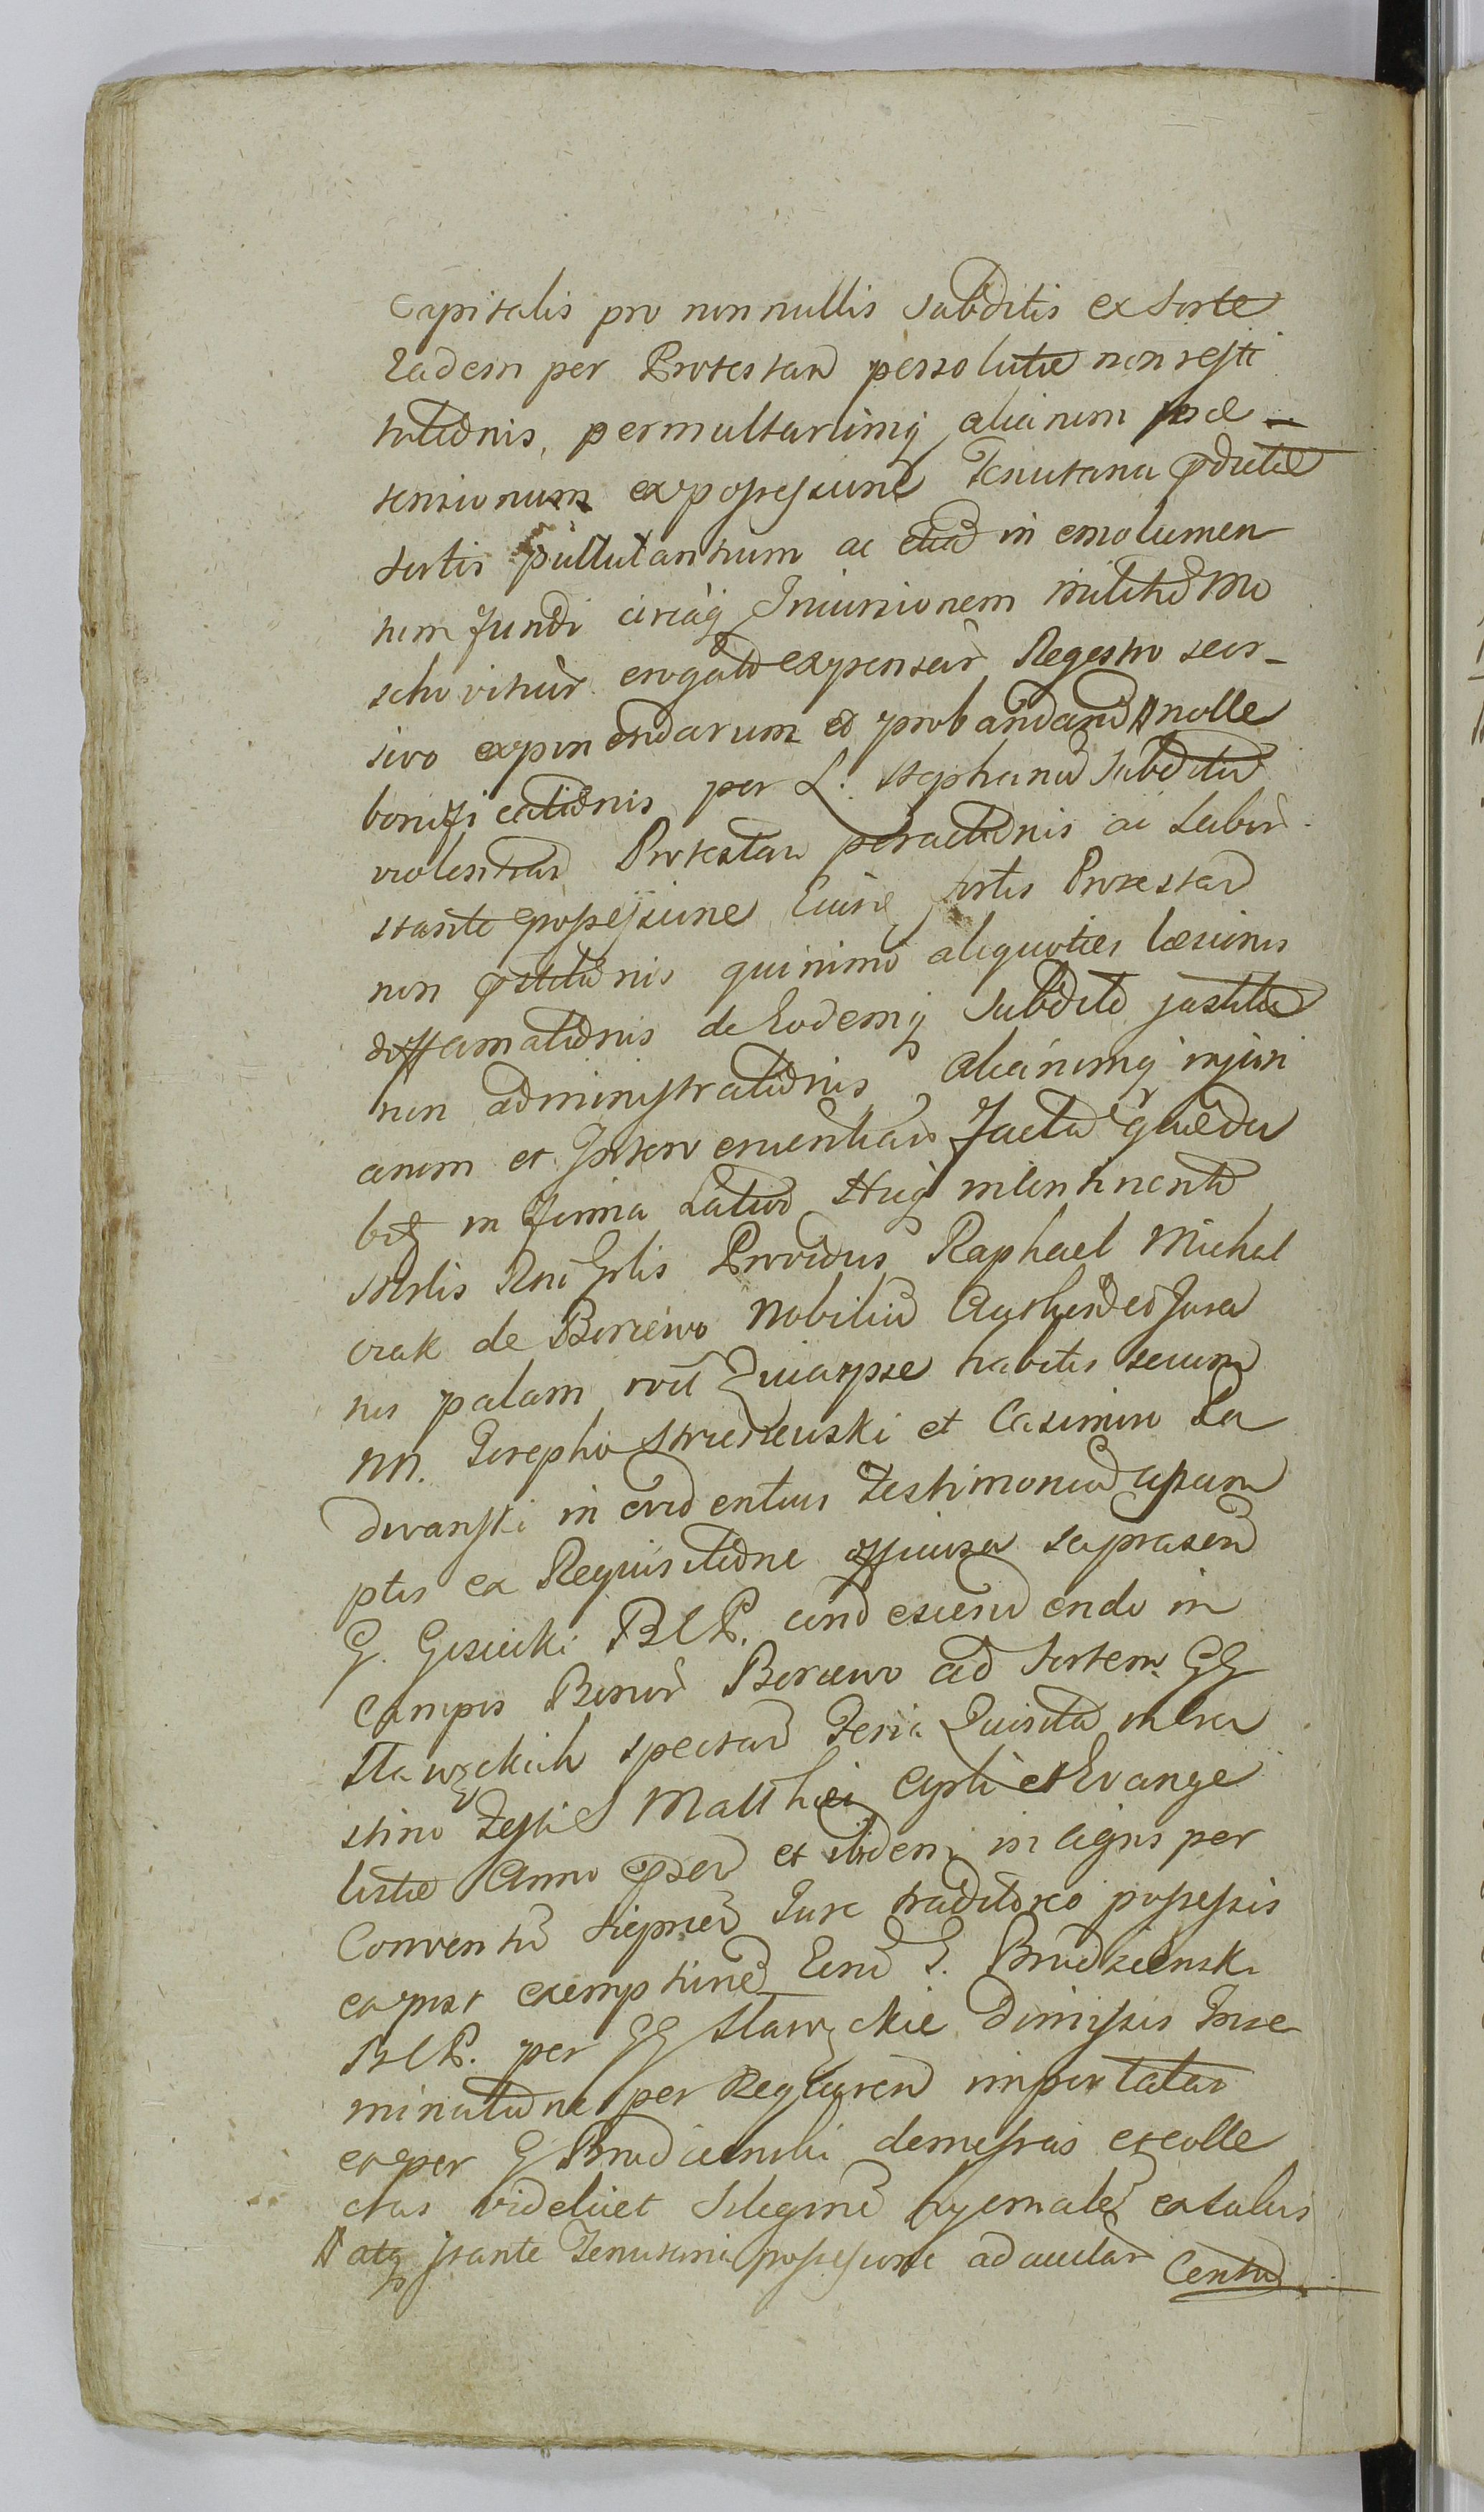 Capitalis pro nonnullis subditis ex sorte
Eadem per Protestan persolutæ non resti
tutionis, permultarumq aliarum præ-
tensionum ex possessione Tenutaria pdictæ
sortis pullulantium ac etiã in emolumen
tum fundi circaq Incursionem militũ Mo
schovitur erogatõ expensar Regestro seor-
sivo exponendarum et probandarũ # nolle
bonificationis per L. Stephanũ Subditũ
violentiar Protestan peractionis ac Labor
stante possessione Eius sortis Protestan
non pstitionis quinimo aliquoties læsionis
diffamationis de Eodemq Subdito justitiæ
non administrationis aliarumq injuri
arum et Intervenientiar facta quædã
bq in forma Latior Hucq intentinentũ
sortis Providus Raphael Michal
crak de Borzewo Nobiliũ Authen et Jura
tus palam Quia ipse habitis secum
NN. Josepho Strzeszewski et Casimiro Ra
dwanski in evidentius Testimoniũ assum
ptis ex Requisitione officiosa suprascrip
G. Gosiecki BCP. condescendendo in
Campis Bonor Borzewo ad sortem GG
Stawskich spectan Feria Quinta intra
stino Festi S Matthæi Apli et Evange
listæ Anno pSen et ibidem in agris per
Conventũ Sieprcen Jure traditorio possessis
ac post exemptionẽ Eorũ G. Brudzienski
BCP. per GG Stawskie dimissis Inse
minatione per Regularen importatar
ac per G Brudzienski demessas et colle
ctas videlicet Siliginẽ hyemalẽ ex talis
# atq stante Tenutaria possessione ad aulãr Centũ